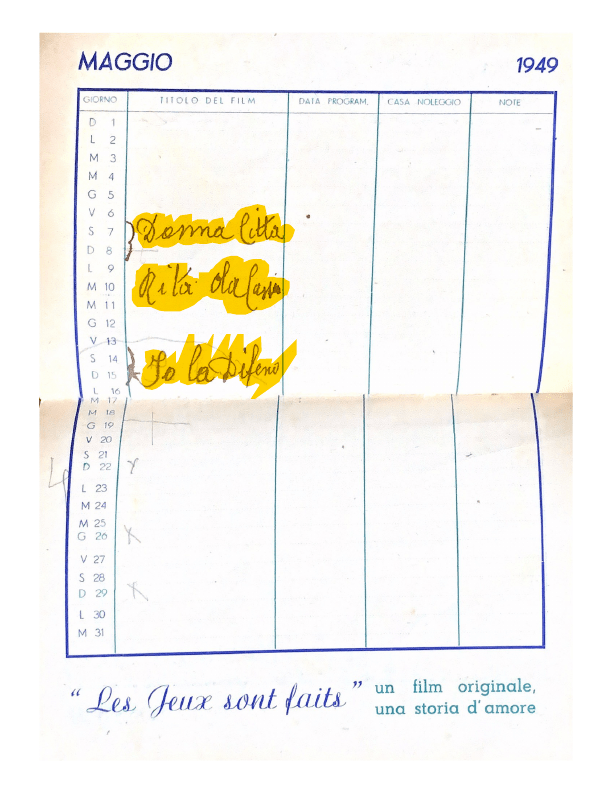 MAGGIO 1949
GIORNO TITOLO DEL FILM DATA PROGRAM. CASA NOLEGGIO NOTE
D 1
L 2
M 3
M 4
G 5
V 6
S 7 Donna Città
D 8
L 9
M 10 Rita da Cassia
M 11
G 12
V 13
S 14
D 15 Io la Difeno
L 16
M 17
M 18
G 19
V 20
S 21
D 22
L 23
M 24
M 25
G 26
V 27
S 28
D 29
L 30
M 31
“Les Jeux sont faits” un film originale,
una storia d'amore